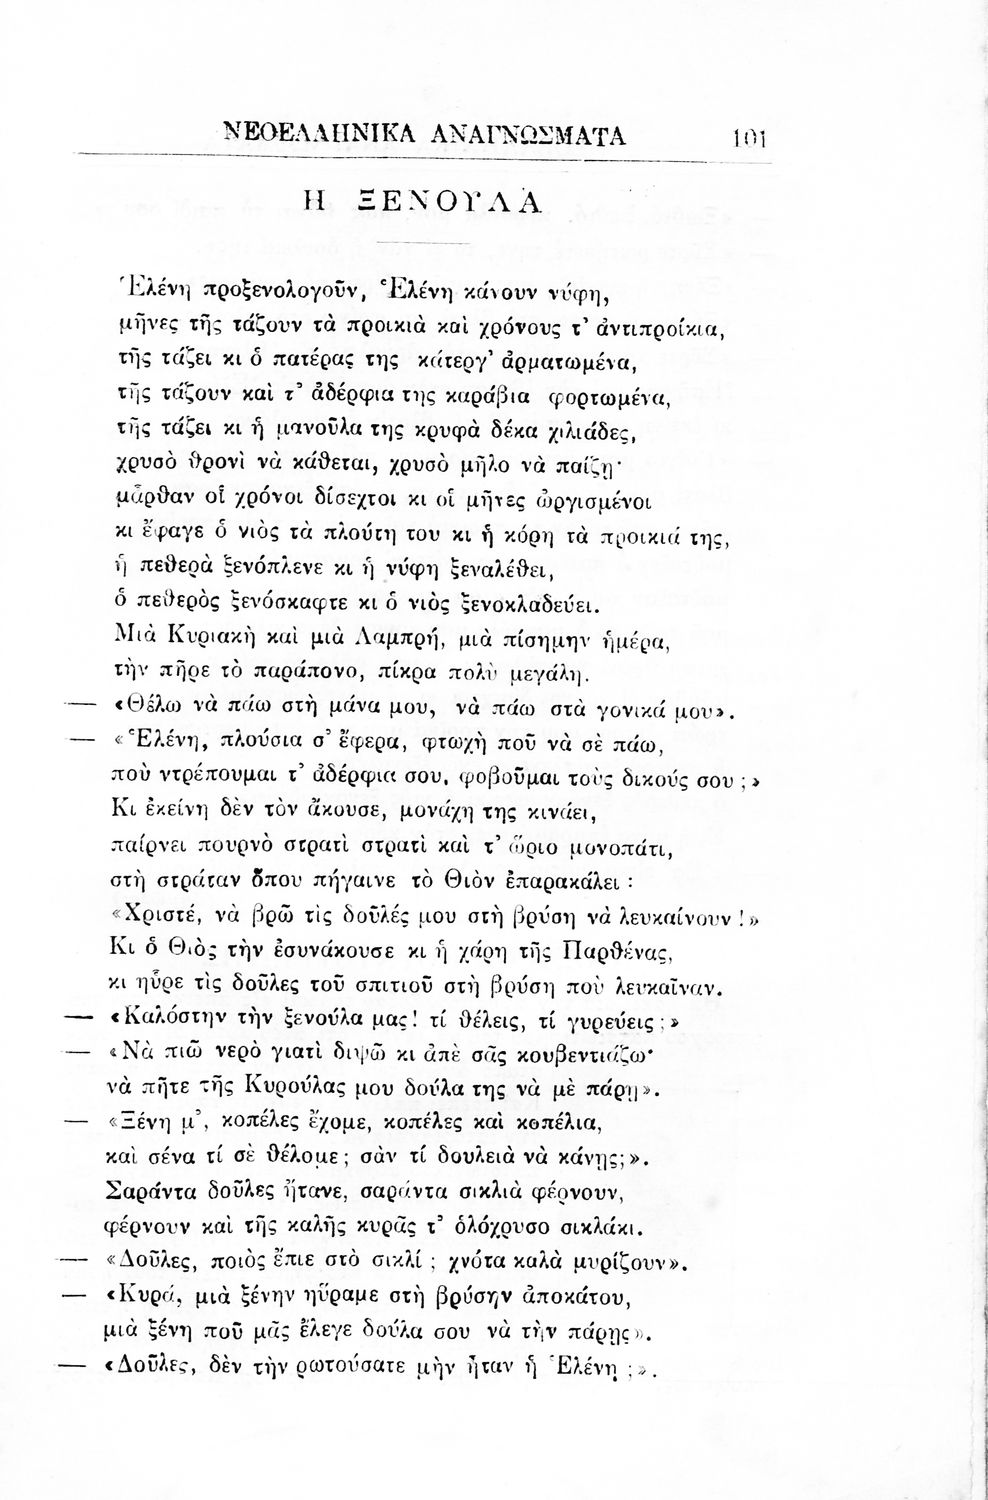 ΝΕΟΕΛΛΗΝΙΚΑ ΑΝΑΓΝΩΣΜΑΤΑ 101
Η ΞΕΝΟΥΛΑ
Ἑλένη προξενολογοῦν, Ἑλένη κάνουν νύφη,
μῆνες τῆς τάζουν τὰ προικιὰ καὶ χρόνους τ' ἀντιπροίκια,
τῆς τάζει κι ὁ πατέρας της κάτεργ' ἀρματωμένα,
τῆς τάζουν καὶ τ' ἀδέρφια της καράβια φορτωμένα,
τῆς τάζει κι ἡ μανοῦλα της κρυφὰ δέκα χιλιάδες,
χρυσὸ θρονὶ νὰ κάθεται, χρυσὸ μῆλο νὰ παίζῃ·
μἆρθαν οἱ χρόνοι δίσεχτοι κι οἱ μῆνες ὠργισμένοι
κι ἔφαγε ὁ νιὸς τὰ πλούτη του κι ἡ κόρη τὰ προικιά της,
ἡ πεθερὰ ξενόπλενε κι ἡ νύφη ξεναλέθει,
ὁ πεθερὸς ξενόσκαφτε κι ὁ νιὸς ξενοκλαδεύει.
Μιὰ Κυριακὴ καὶ μιὰ Λαμπρή, μιὰ πίσημην ἡμέρα,
τὴν πῆρε τὸ παράπονο, πίκρα πολὺ μεγάλη.
— «Θέλω νὰ πάω στὴ μάνα μου, νὰ πάω στὰ γονικά μου».
— «Ἑλένη, πλούσια σ' ἔφερα, φτωχὴ ποῦ νὰ σὲ πάω,
ποὺ ντρέπουμαι τ' ἀδέρφια σου, φοβοῦμαι τοὺς δικούς σου ;»
Κι ἐκείνη δὲν τὸν ἄκουσε, μονάχη της κινάει,
παίρνει πουρνὸ στρατὶ στρατὶ καὶ τ' ὥριο μονοπάτι,
στὴ στράταν ὅπου πήγαινε τὸ Θιὸν ἐπαρακάλει :
«Χριστέ, νὰ βρῶ τὶς δοῦλές μου στὴ βρύση νὰ λευκαίνουν !»
Κι ὁ Θιὸς τὴν ἐσυνάκουσε κι ἡ χάρη τῆς Παρθένας,
κι ηὗρε τὶς δοῦλες τοῦ σπιτιοῦ στὴ βρύση ποὺ λευκαῖναν.
— «Καλόστην τὴν ξενούλα μας! τί θέλεις, τί γυρεύεις ;»
— «Νὰ πιῶ νερὸ γιατὶ διψῶ κι ἀπὲ σᾶς κουβεντιάζω·
νὰ πῆτε τῆς Κυρούλας μου δούλα της νὰ μὲ πάρῃ».
— «Ξένη μ', κοπέλες ἔχομε, κοπέλες καὶ κοπέλια,
καὶ σένα τί σὲ θέλομε; σὰν τί δουλειὰ νὰ κάνῃς;».
Σαράντα δοῦλες ἤτανε, σαράντα σικλιὰ φέρνουν,
φέρνουν καὶ τῆς καλῆς κυρᾶς τ' ὁλόχρυσο σικλάκι.
— «Δοῦλες, ποιὸς ἔπιε στὸ σικλί ; χνότα καλὰ μυρίζουν».
— «Κυρά, μιὰ ξένην ηὕραμε στὴ βρύσην ἀποκάτου,
μιὰ ξένη ποῦ μᾶς ἔλεγε δούλα σου νὰ τὴν πάρῃς».
— «Δοῦλες, δὲν τὴν ρωτούσατε μὴν ἦταν ἡ Ἑλένη ;».